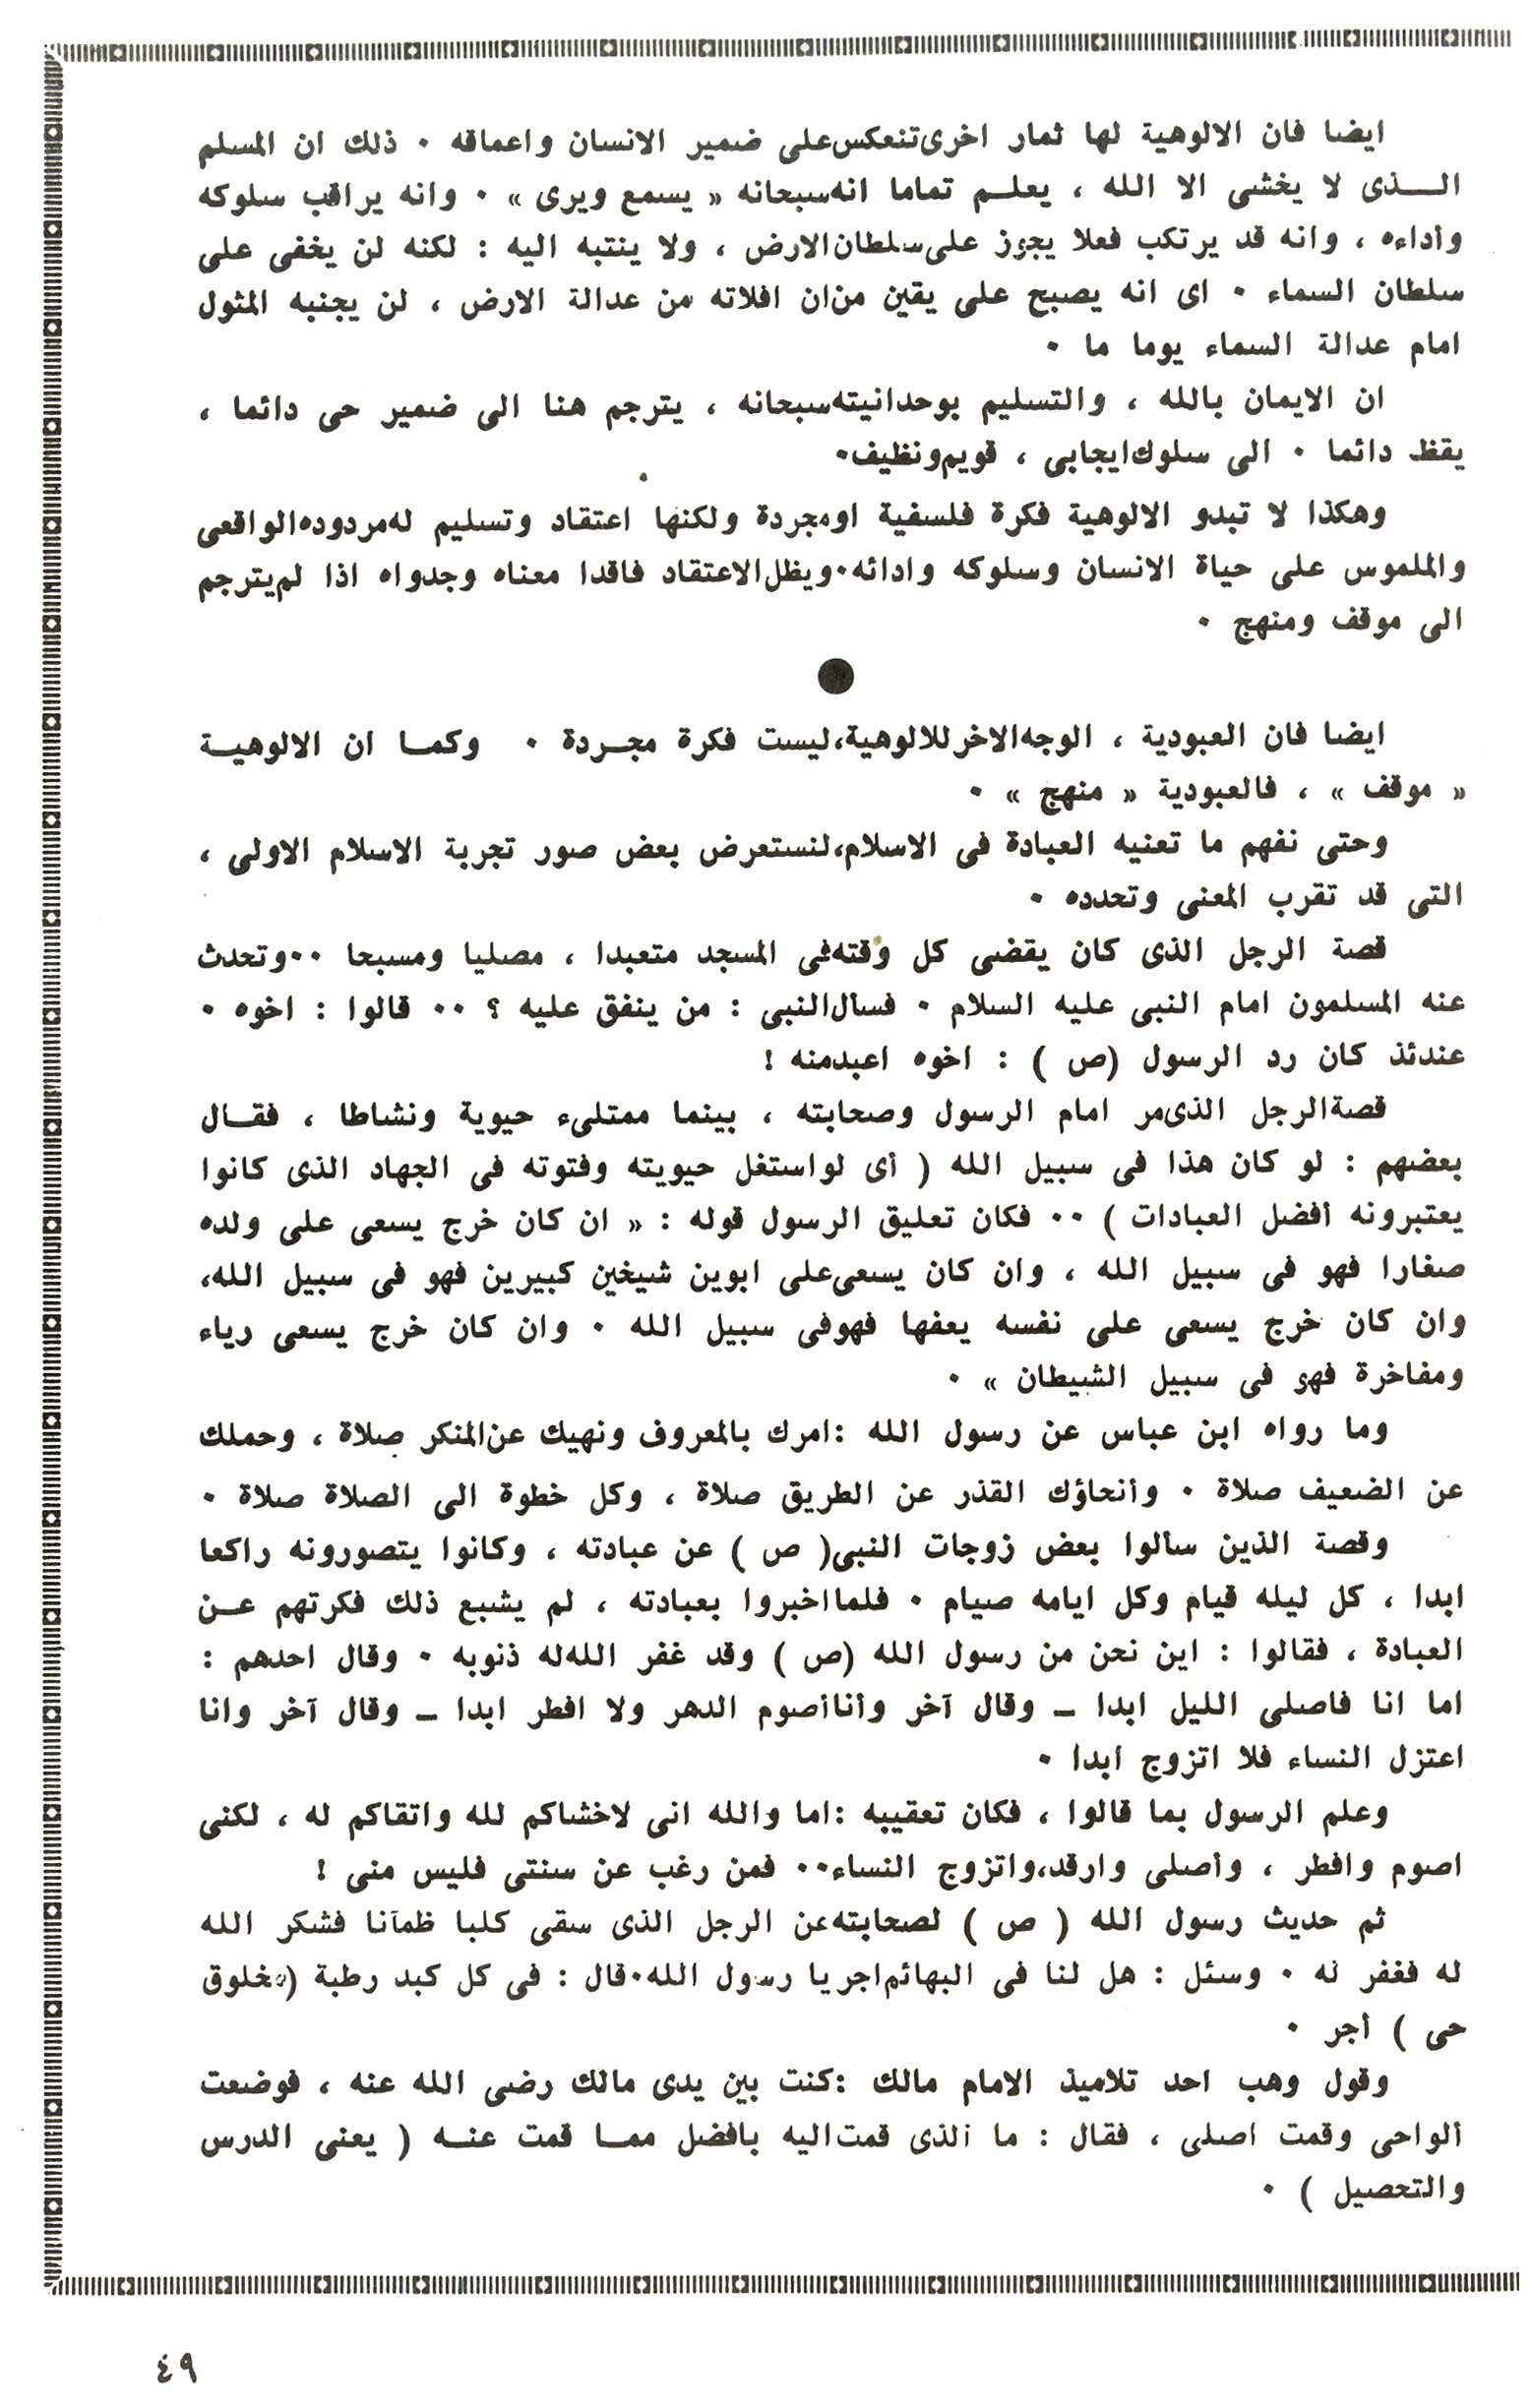 ايضا فان الالوهية لها ثمار اخرى تنعكس على ضمير الانسان واعماقه ٠ ذلك ان المسلم
الــذى لا يخشى الا الله ، يعلــم تماما انه سبحانه « يسمع ويرى » ٠ وانه يراقب سلوكه
وأداءه ، وانه قد يرتكب فعلا يجوز على سلطان الارض ، ولا ينتبه اليه : لكنه لن يخفى على
سلطان السماء ٠ اى انه يصبح على يقين من ان افلاته من عدالة الارض ، لن يجنبه المثول
امام عدالة السماء يوما ما ٠
ان الايمان بالله ، والتسليم بوحدانيته سبحانه ، يترجم هنا الى ضمير حى دائما ،
يقظ دائما ٠ الى سلوك ايجابى ، قويم ونظيف٠
وهكذا لا تبدو الالوهية فكرة فلسفية او مجردة ولكنها اعتقاد وتسليم له مردوده الواقعى
والملموس على حياة الانسان وسلوكه وادائه٠ ويظل الاعتقاد فاقدا معناه وجدواه اذا لم يترجم
الى موقف ومنهج ٠
ايضا فان العبودية ، الوجه الاخر للالوهية، ليست فكرة مجــردة ٠ وكمــا ان الالوهيــة
« موقف » ، فالعبودية « منهج » ٠
وحتى نفهم ما تعنيه العبادة فى الاسلام، لنستعرض بعض صور تجربة الاسلام الاولى ،
التى قد تقرب المعنى وتحدده ٠
قصة الرجل الذى كان يقضى كل وقته فى المسجد متعبدا ، مصليا ومسبحا ٠٠ وتحدث
عنه المسلمون امام النبى عليه السلام ٠ فسأل النبى : من ينفق عليه ؟ ٠٠ قالوا : اخوه ٠
عندئذ كان رد الرسول (ص ) : اخوه اعبد منه !
قصة الرجل الذى مر امام الرسول وصحابته ، بينما ممتلىء حيوية ونشاطا ، فقــال
بعضهم : لو كان هذا فى سبيل الله ( أى لو استغل حيويته وفتوته فى الجهاد الذى كانوا
يعتبرونه أفضل العبادات ) ٠٠ فكان تعليق الرسول قوله : « ان كان خرج يسعى على ولده
صغارا فهو فى سبيل الله ، وان كان يسعى على ابوين شيخين كبيرين فهو فى سبيل الله،
وان كان خرج يسعى على نفسه يعفها فهو فى سبيل الله ٠ وان كان خرج يسعى رياء
ومفاخرة فهو فى سبيل الشيطان » ٠
وما رواه ابن عباس عن رسول الله : امرك بالمعروف ونهيك عن المنكر صلاة ، وحملك
عن الضعيف صلاة ٠ وأنحاؤك القذر عن الطريق صلاة ، وكل خطوة الى الصلاة صلاة ٠
وقصة الذين سألوا بعض زوجات النبى( ص ) عن عبادته ، وكانوا يتصورونه راكعا
ابدا ، كل ليله قيام وكل ايامه صيام ٠ فلما اخبروا بعبادته ، لم يشبع ذلك فكرتهم عــن
العبادة ، فقالوا : اين نحن من رسول الله (ص ) وقد غفر الله له ذنوبه ٠ وقال احدهم :
اما انا فاصلى الليل ابدا ــ وقال آخر وأنا أصوم الدهر ولا افطر ابدا ــ وقال آخر وانا
اعتزل النساء فلا اتزوج ابدا ٠
وعلم الرسول بما قالوا ، فكان تعقيبه : اما والله انى لاخشاكم لله واتقاكم له ، لكنى
اصوم وافطر ، وأصلى وارقد، واتزوج النساء٠٠ فمن رغب عن سنتى فليس منى !
ثم حديث رسول الله ( ص ) لصحابته عن الرجل الذى سقى كلبا ظمآنا فشكر الله
له فغفر له ٠ وسئل : هل لنا فى البهائم اجر يا رسول الله٠ قال : فى كل كبد رطبة (مخلوق
حى ) أجر ٠
وقول وهب احد تلاميذ الامام مالك : كنت بين يدى مالك رضى الله عنه ، فوضعت
ألواحى وقمت اصلى ، فقال : ما الذى قمت اليه بافضل ممــا قمت عنــه ( يعنى الدرس
والتحصيل ) ٠
٤٩